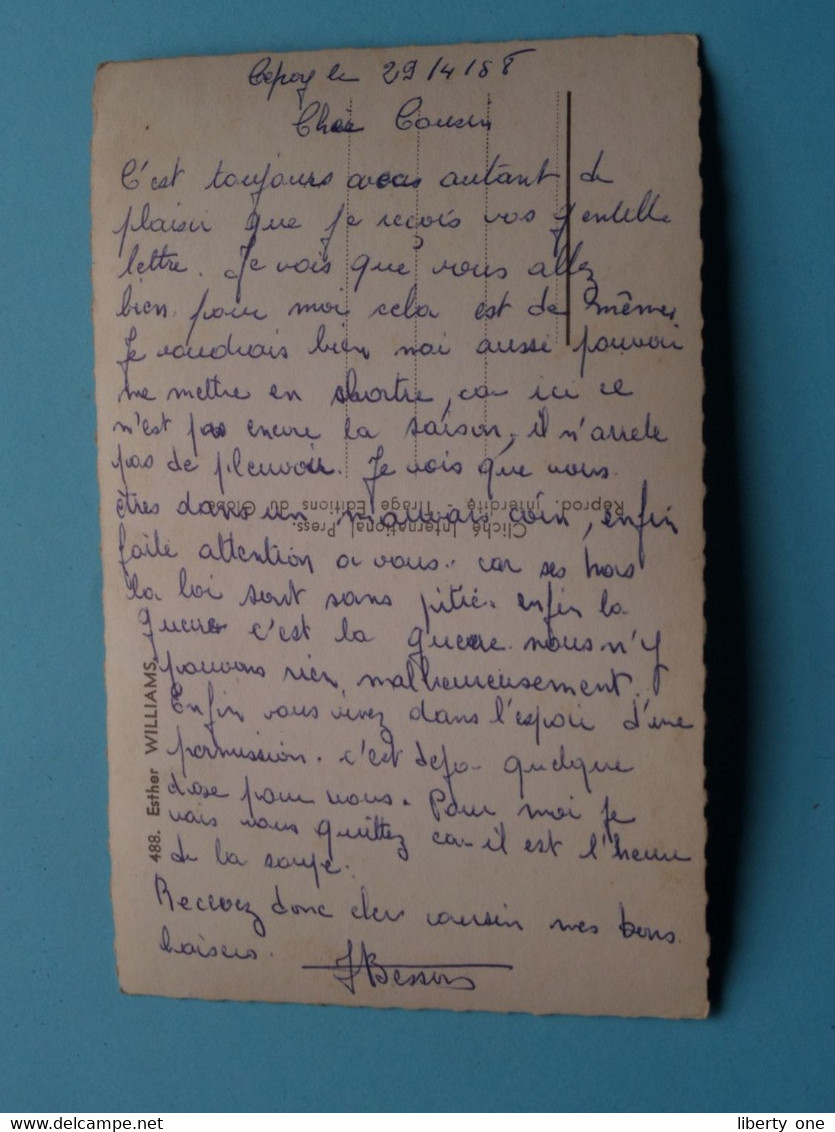 Cepoy le 29/4/58
Cher Cousin
C'est toujours avec autant de
plaisir que je reçois vos gentille
lettre. Je vois que vous allez
bien. pour moi cela est de même
Je voudrais bien moi aussi pouvoir
me mettre en shortre, car ici ce
n'est pas encore la saison, il n'arrete
pas de pleuvoir. Je vois que vous
êtres dans un mauvais coin, enfin
faite attention a vous. car ses hors
la loi sont sans pitié. enfin la
guerre c'est la guerre nous n'y
pouvons rien, malheureusement.
Enfin vous vivez dans l'espoir d'une
permission. c'est deja quelque
chose pour vous. Pour moi je
vais vous quittez car il est l'heure
de la soupe.
Recevez donc cher cousin mes bons
baisers.
J Besson
488. Esther WILLIAMS
Cliché International Press.
Reprod. interdite - Tirage Editions du Globe
www.delcampe.net
liberty one